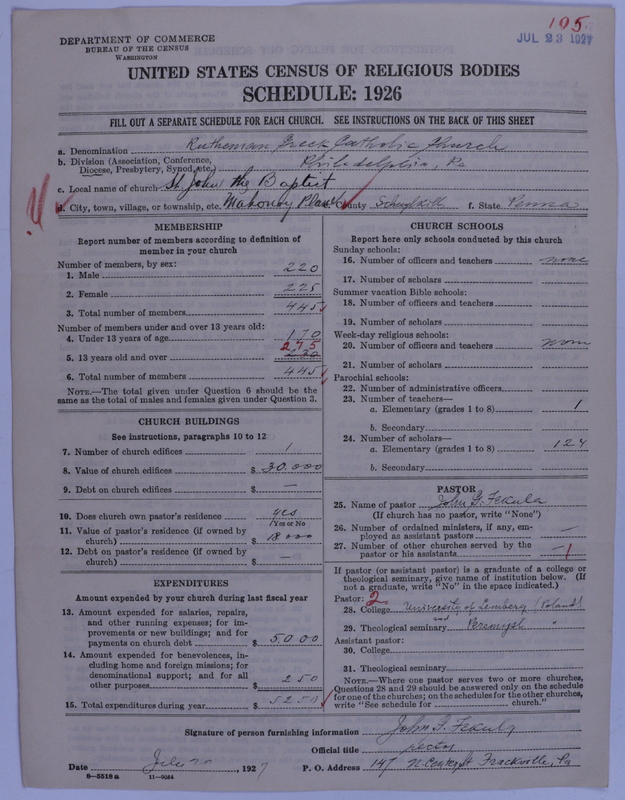 195
JUL 23 1927
DEPARTMENT OF COMMERCE
BUREAU OF THE CENSUS
WASHINGTON
UNITED STATES CENSUS OF RELIGIOUS BODIES
SCHEDULE: 1926
FILL OUT A SEPARATE SCHEDULE FOR EACH CHURCH. SEE INSTRUCTIONS ON THE BACK OF THIS SHEET
a. Denomination Ruthenian Greek Catholic Church
b. Division (Association, Conference, Diocese, Presbytery, Synod, etc.) Philadelphia, Pa
c. Local name of church St. John the Baptist
d. City, town, village, or township, etc. Mahonoy Plane County Schuylkill f. State Penna
MEMBERSHIP
Report number of members according to definition of
member in your church
Number of members, by sex:
1. Male 220
2. Female 225
3. Total number of members 445
Number of members under and over 13 years old:
4. Under 13 years of age 170
275
5. 13 years old and over
6. Total number of members 445
NOTE.—The total given under Question 6 should be the
same as the total of males and females given under Question 3.
CHURCH BUILDINGS
See instructions, paragraphs 10 to 12
7. Number of church edifices 1
8. Value of church edifices $ 30.000
9. Debt on church edifices $ —
10. Does church own pastor's residence yes
(Yes or No)
11. Value of pastor's residence (if owned by
church) $ 18000
12. Debt on pastor's residence (if owned by
church) $ —
EXPENDITURES
Amount expended by your church during last fiscal year
13. Amount expended for salaries, repairs,
and other running expenses; for im-
provements or new buildings; and for
payments on church debt $ 5000
14. Amount expended for benevolences, in-
cluding home and foreign missions; for
denominational support; and for all
other purposes $ 250
15. Total expenditures during year $ 5250
CHURCH SCHOOLS
Report here only schools conducted by this church
Sunday schools:
16. Number of officers and teachers none
17. Number of scholars
Summer vacation Bible schools:
18. Number of officers and teachers
19. Number of scholars
Week-day religious schools:
20. Number of officers and teachers none
21. Number of scholars
Parochial schools:
22. Number of administrative officers
23. Number of teachers—
a. Elementary (grades 1 to 8) 1
b. Secondary
24. Number of scholars—
a. Elementary (grades 1 to 8) 124
b. Secondary
PASTOR
25. Name of pastor John G. Fekula
(If church has no pastor, write "None")
26. Number of ordained ministers, if any, em-
ployed as assistant pastors —
27. Number of other churches served by the
pastor or his assistants 1
If pastor (or assistant pastor) is a graduate of a college or
theological seminary, give name of institution below. (If
not a graduate, write "No" in the space indicated.)
Pastor: 2
28. College University of Lemberg (Poland)
and
29. Theological seminary Peremysl "
Assistant pastor:
30. College
31. Theological seminary
NOTE.—Where one pastor serves two or more churches,
Questions 28 and 29 should be answered only on the schedule
for one of the churches; on the schedules for the other churches,
write "See schedule for church."
Signature of person furnishing information John G. Fekula
Official title rector
Date July 20, 1927 P. O. Address 147 N. Center St Frackville, Pa
8—5518 a 11—9084